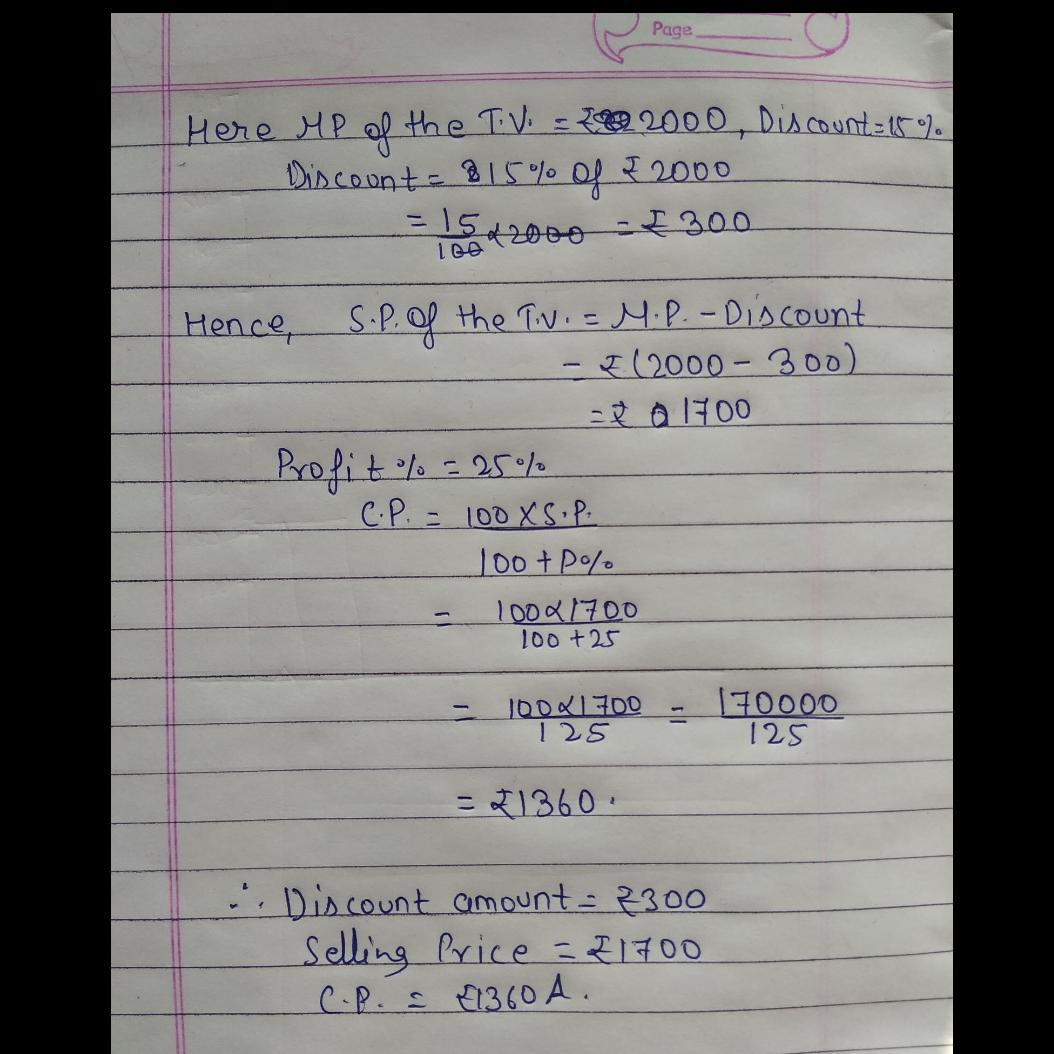 Page
Here MP of the T.V. = ₹ 2000, Discount=15%
Discount = 15% of ₹2000
= 15/100 × 2000 = ₹ 300
Hence, S.P. of the T.V. = M.P. - Discount
- ₹ (2000 - 300)
= ₹ 1700
Profit % = 25%
C.P. = 100 X S.P.
100 + P%
= 100×1700
100 + 25
= 100×1700 = 170000
125 125
= ₹1360.
∴ Discount amount = ₹300
Selling Price = ₹1700
C.P. = ₹1360 A.